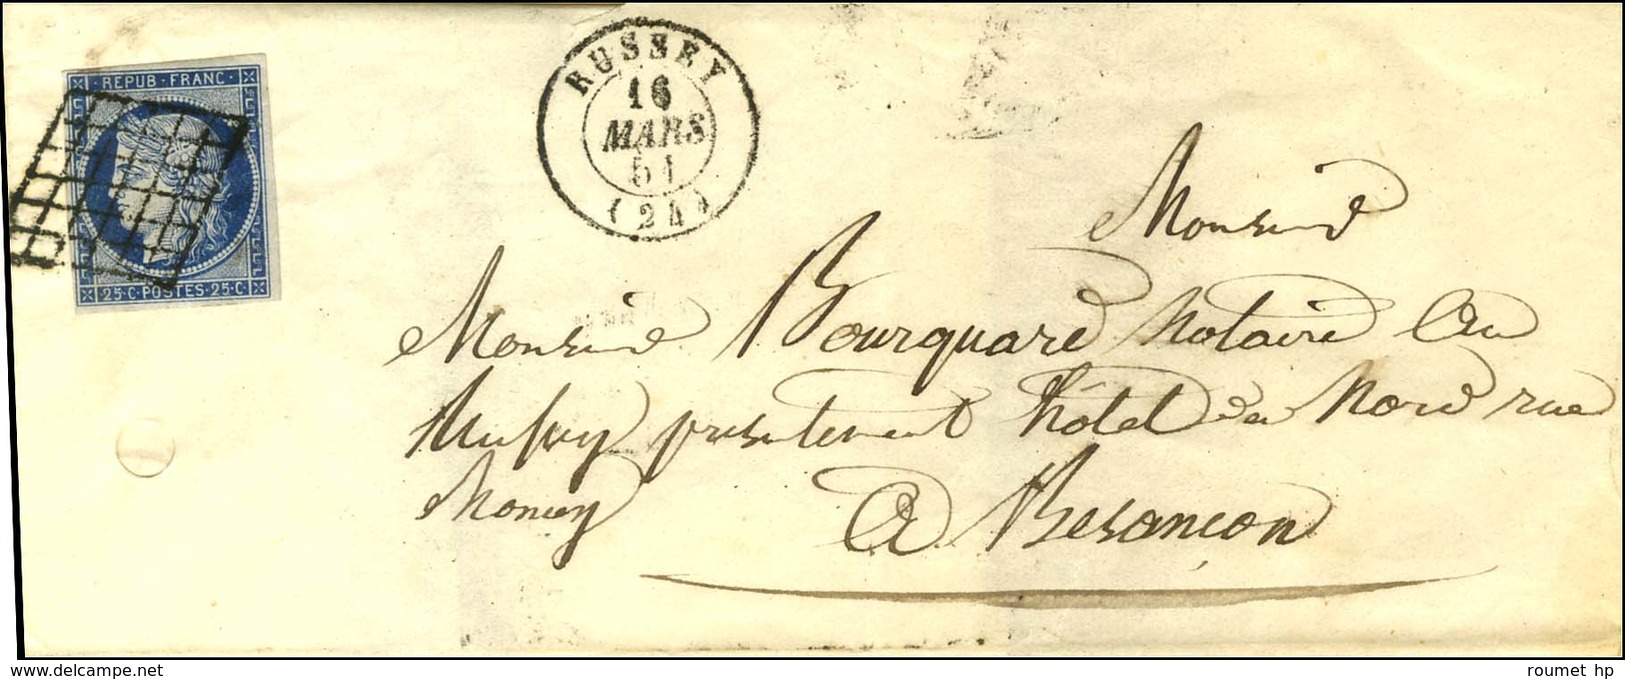 REPUB · FRANC ·
25 · C · POSTES · 25 · C
RUSSEY
16
MARS
51
(24)
Monsieur
Monsieur Bourquard notaire au
Russey présentement hôtel du Nord rue
Moncey
A Besançon
www.delcampe.net
roumet hp